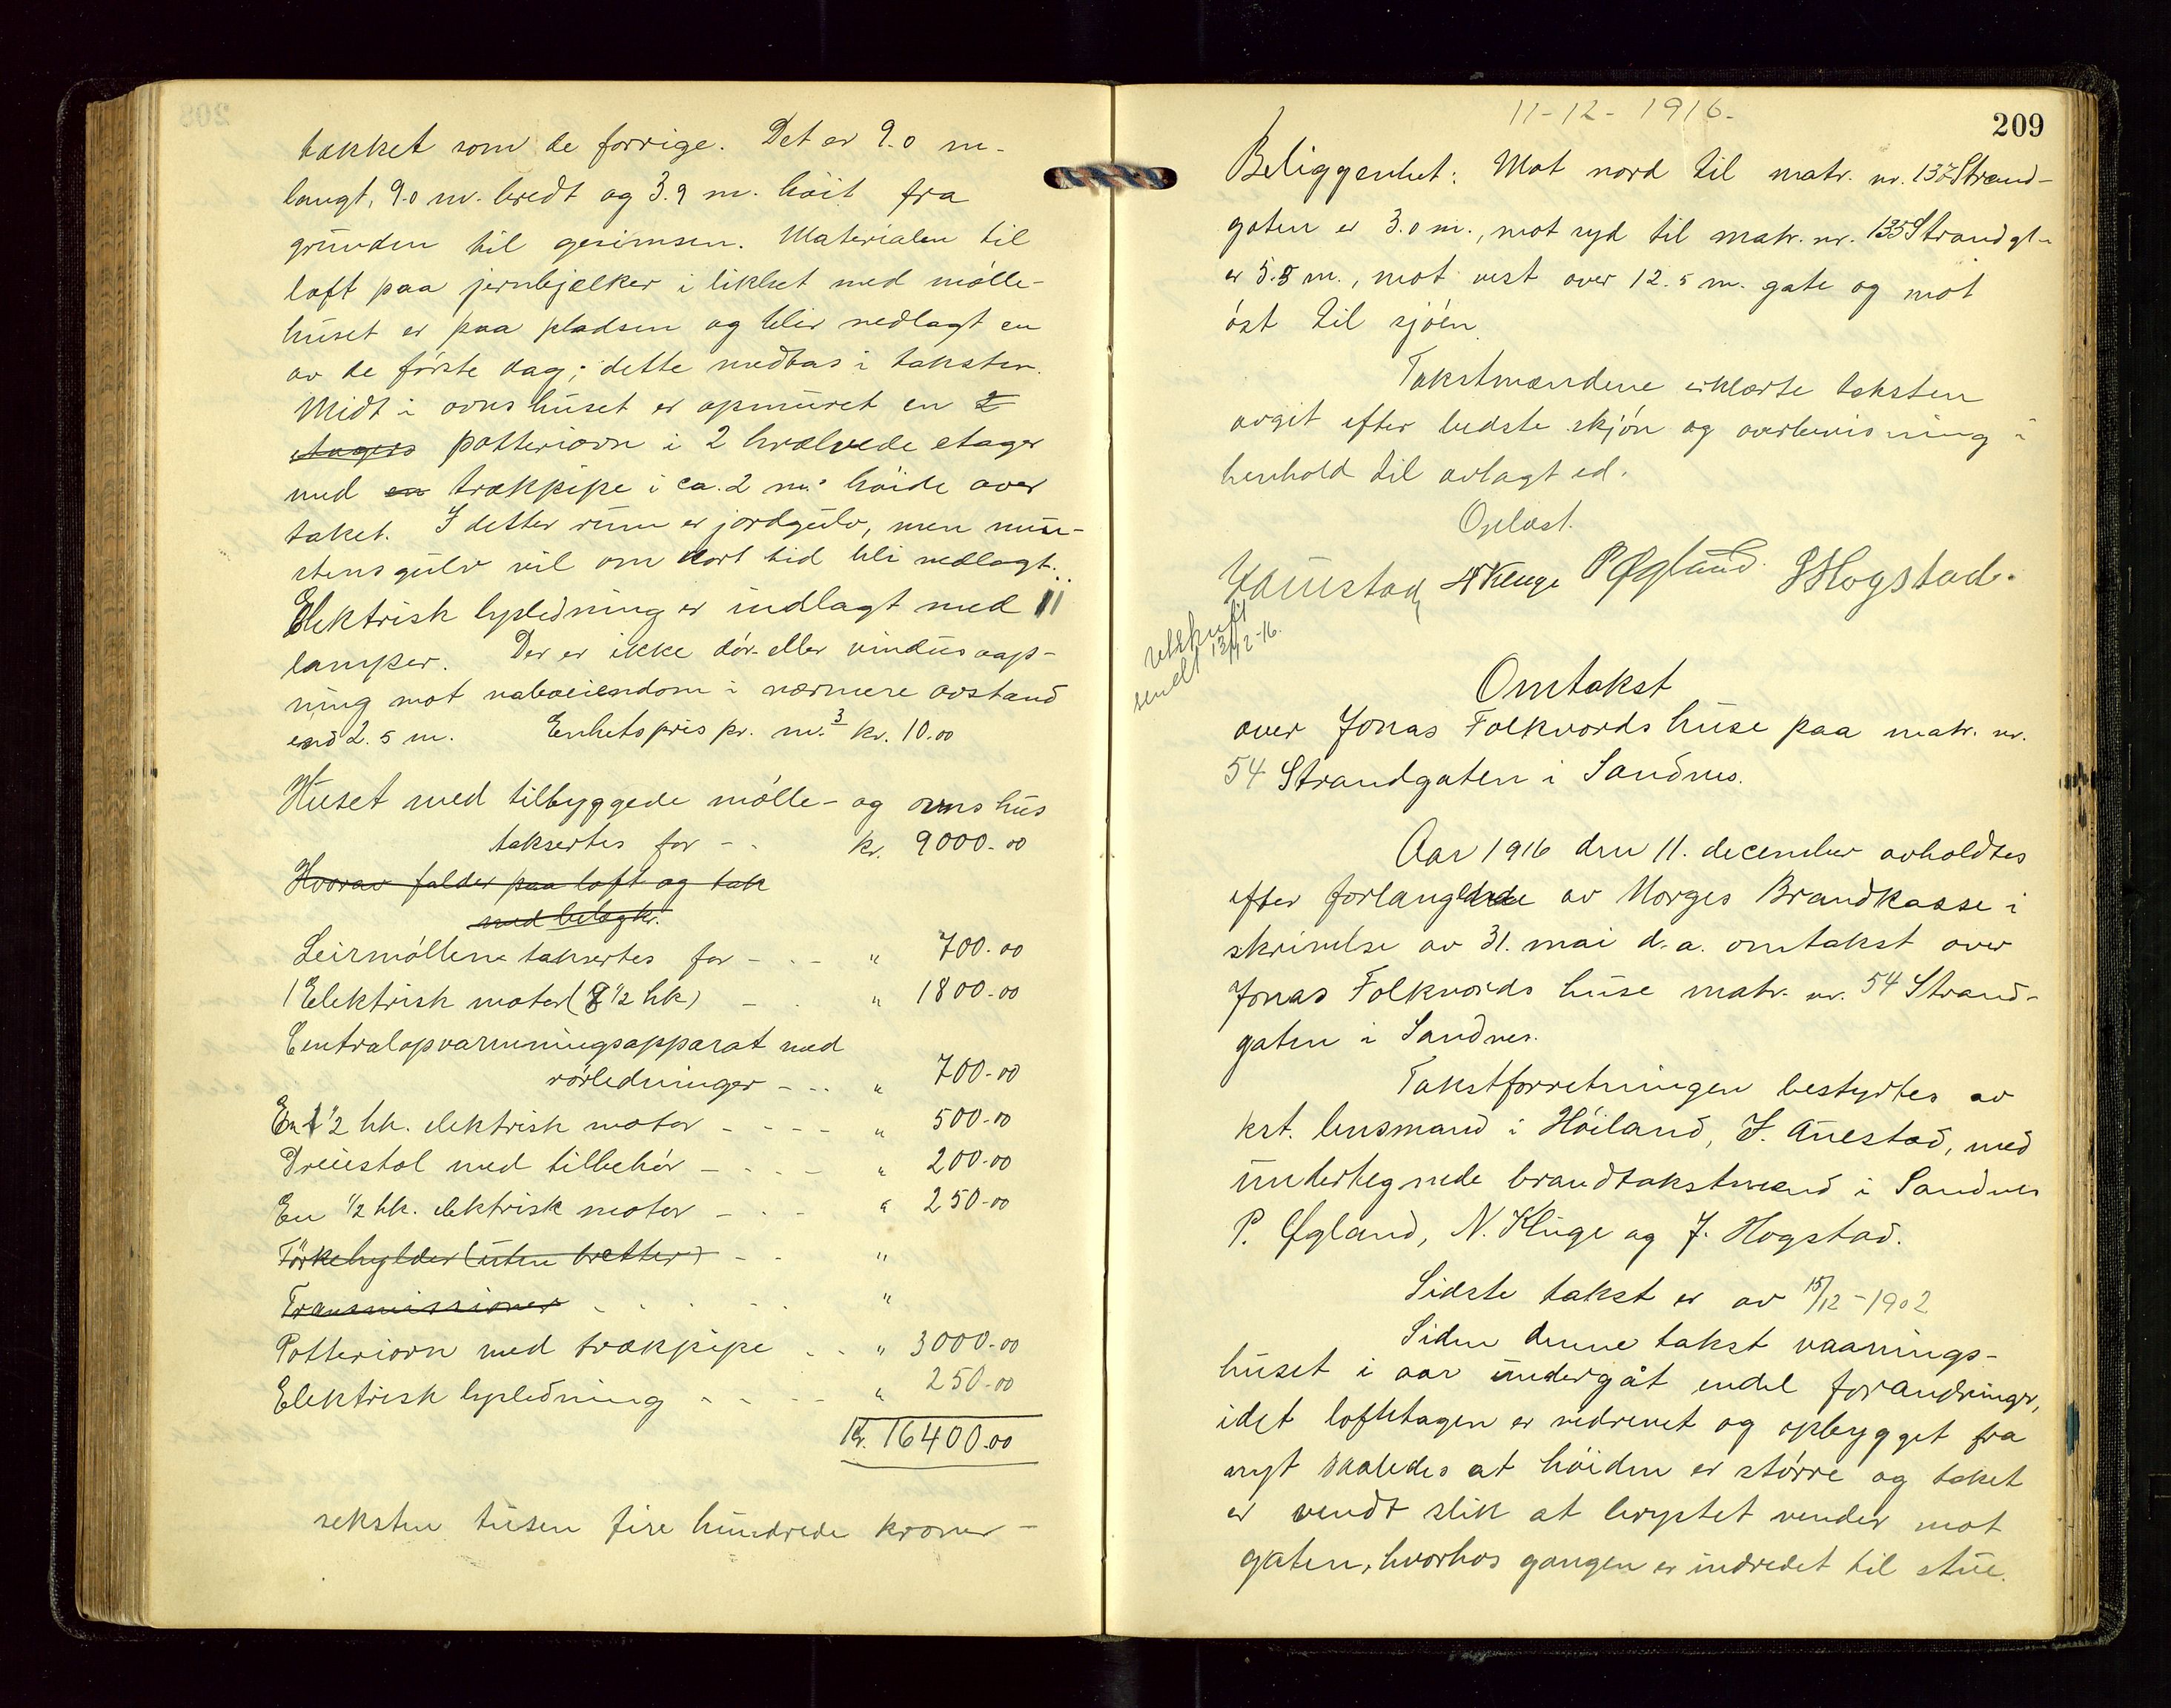 takket som de forrige. Det er 9.0 m.
langt, 9.0 m. bredt og 3.9 m. høit fra
grunden til gesimsen. Materialen til
loft paa jernbjælker i likhet med mølle-
huset er paa pladsen og blir nedlagt en
av de første dag; dette medtas i taksten.
Midt i ovnshuset er opmuret en 2
etagers potteriovn i 2 hvælvede etager
med en trækpipe i ca. 2 m. høide over
taket. I dette rum er jordgulv, men mur-
stensgulv vil om kort tid bli nedlagt.
Elektrisk lysledning er indlagt med 11
lamper. Der er ikke dør- eller vindusaap-
ning mot naboeiendom i nærmere avstand
end 2.5 m. Enhetspris pr. m.3 kr. 10.00
Huset med tilbyggede mølle- og ovnshus
taksertes for - - kr. 9000-00
Hvorav falder paa loft og tak
med belægkr.
Leirmøllene taksertes for - - - " 700-00
1 Elektrisk motor (7 1/2 hk) - - " 1800-00
Centralopvarmningsapparat med
rørledninger - - - " 700-00
En 1 1/2 hk. elektrisk motor - - - - " 500-00
Dreiestol med tilbehør - - - - " 200-00
En 1/2 hk. elektrisk motor - - - " 250-00
Tørkehylder (uten bretter) - - "
Transmissioner - - - - "
Potteriovn med trækpipe - - " 3000-00
Elektrisk lysledning - - - - " 250-00
Kr. 16400.00
seksten tusen fire hundrede kroner -
11-12-1916.
209
Beliggenhet: Mot nord til matr. nr. 137 Strand-
gaten er 3.0 m., mot syd til matr. nr. 135 Strandgt.
er 5.5 m., mot vest over 12.5 m. gate og mot
øst til sjøen.
Takstmændene erklærte taksten
avgit efter bedste skjøn og overbevisning i
henhold til avlagt ed.
Oplæst.
J Auestad N Kluge P Øgland J Hogstad.
utskrift
sendt 13/12-16.
Omtakst
over Jonas Folkvords huse paa matr. nr.
54 Strandgaten i Sandnes.
Aar 1916 den 11. december avholdtes
efter forlangende av Norges Brandkasse i
skrivelse av 31. mai d.a. omtakst over
Jonas Folkvords huse matr. nr. 54 Strand-
gaten i Sandnes.
Takstforretningen bestyrtes av
kst. lensmand i Høiland, J. Auestad, med
undertegnede brandtakstmænd i Sandnes
P. Øgland, N. Kluge og J. Hogstad.
Sidste takst er av 15/12-1902
Siden denne takst vaanings-
huset i aar undergåt endel forandringer,
idet loftetagen er nedrevet og opbygget fra
nyt saaledes at høiden er større og taket
er vendt slik at brystet vender mot
gaten, hvorhos gangen er indredet til stue.